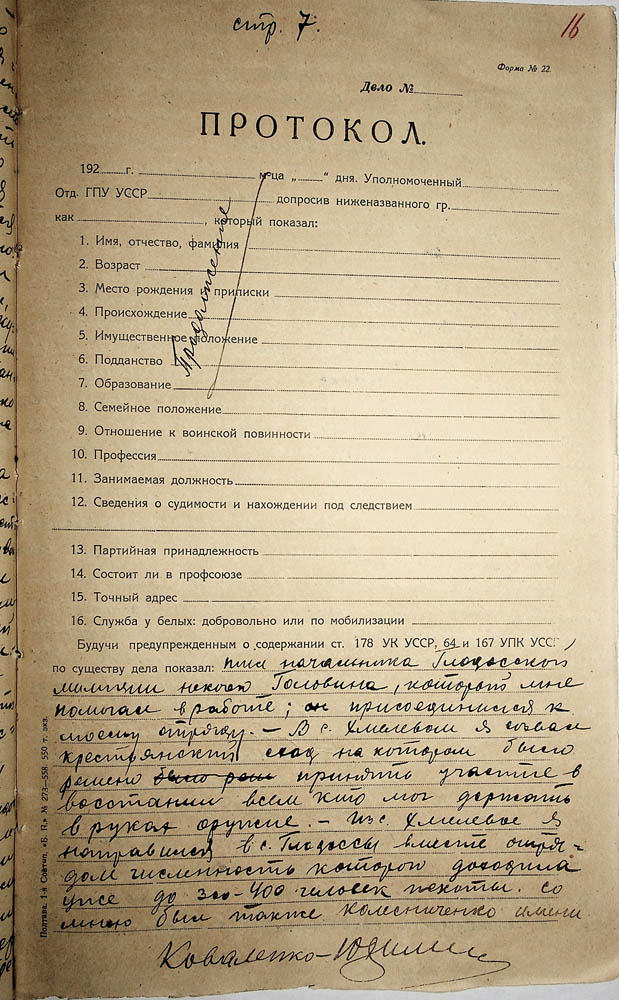 стр. 7.
16
Форма № 22.
Дело №
ПРОТОКОЛ.
192 г. м-ца „ “ дня. Уполномоченный
Отд. ГПУ УССР допросив ниженазванного гр.
как , который показал:
Продолжение
1. Имя, отчество, фамилия
2. Возраст
3. Место рождения и приписки
4. Происхождение
5. Имущественное положение
6. Подданство
7. Образование
8. Семейное положение
9. Отношение к воинской повинности
10. Профессия
11. Занимаемая должность
12. Сведения о судимости и нахождении под следствием
13. Партийная принадлежность
14. Состоит ли в профсоюзе
15. Точный адрес
16. Служба у белых: добровольно или по мобилизации
Будучи предупрежденным о содержании ст. 178 УК УССР, 64 и 167 УПК УССР
по существу дела показал: начальника Глодосской
милиции некоего Головина, который мне
помогал в работе; он присоединился к
моему отряду. – В с. Хмелевом я созвал
крестьянский сход на котором было
решено было реше принять участие в
восстании всем кто мог держать
в руках оружие. – Из с. Хмелевое я
направился в с. Глодоссы вместе отря-
дом численность которого доходила
уже до 300–400 человек пехоты. Со
мною был также Колесниченко имени
Коваленко-
Полтава, 1-я Совтип. «Б. Н.» № 273—558. 550 т. экз.